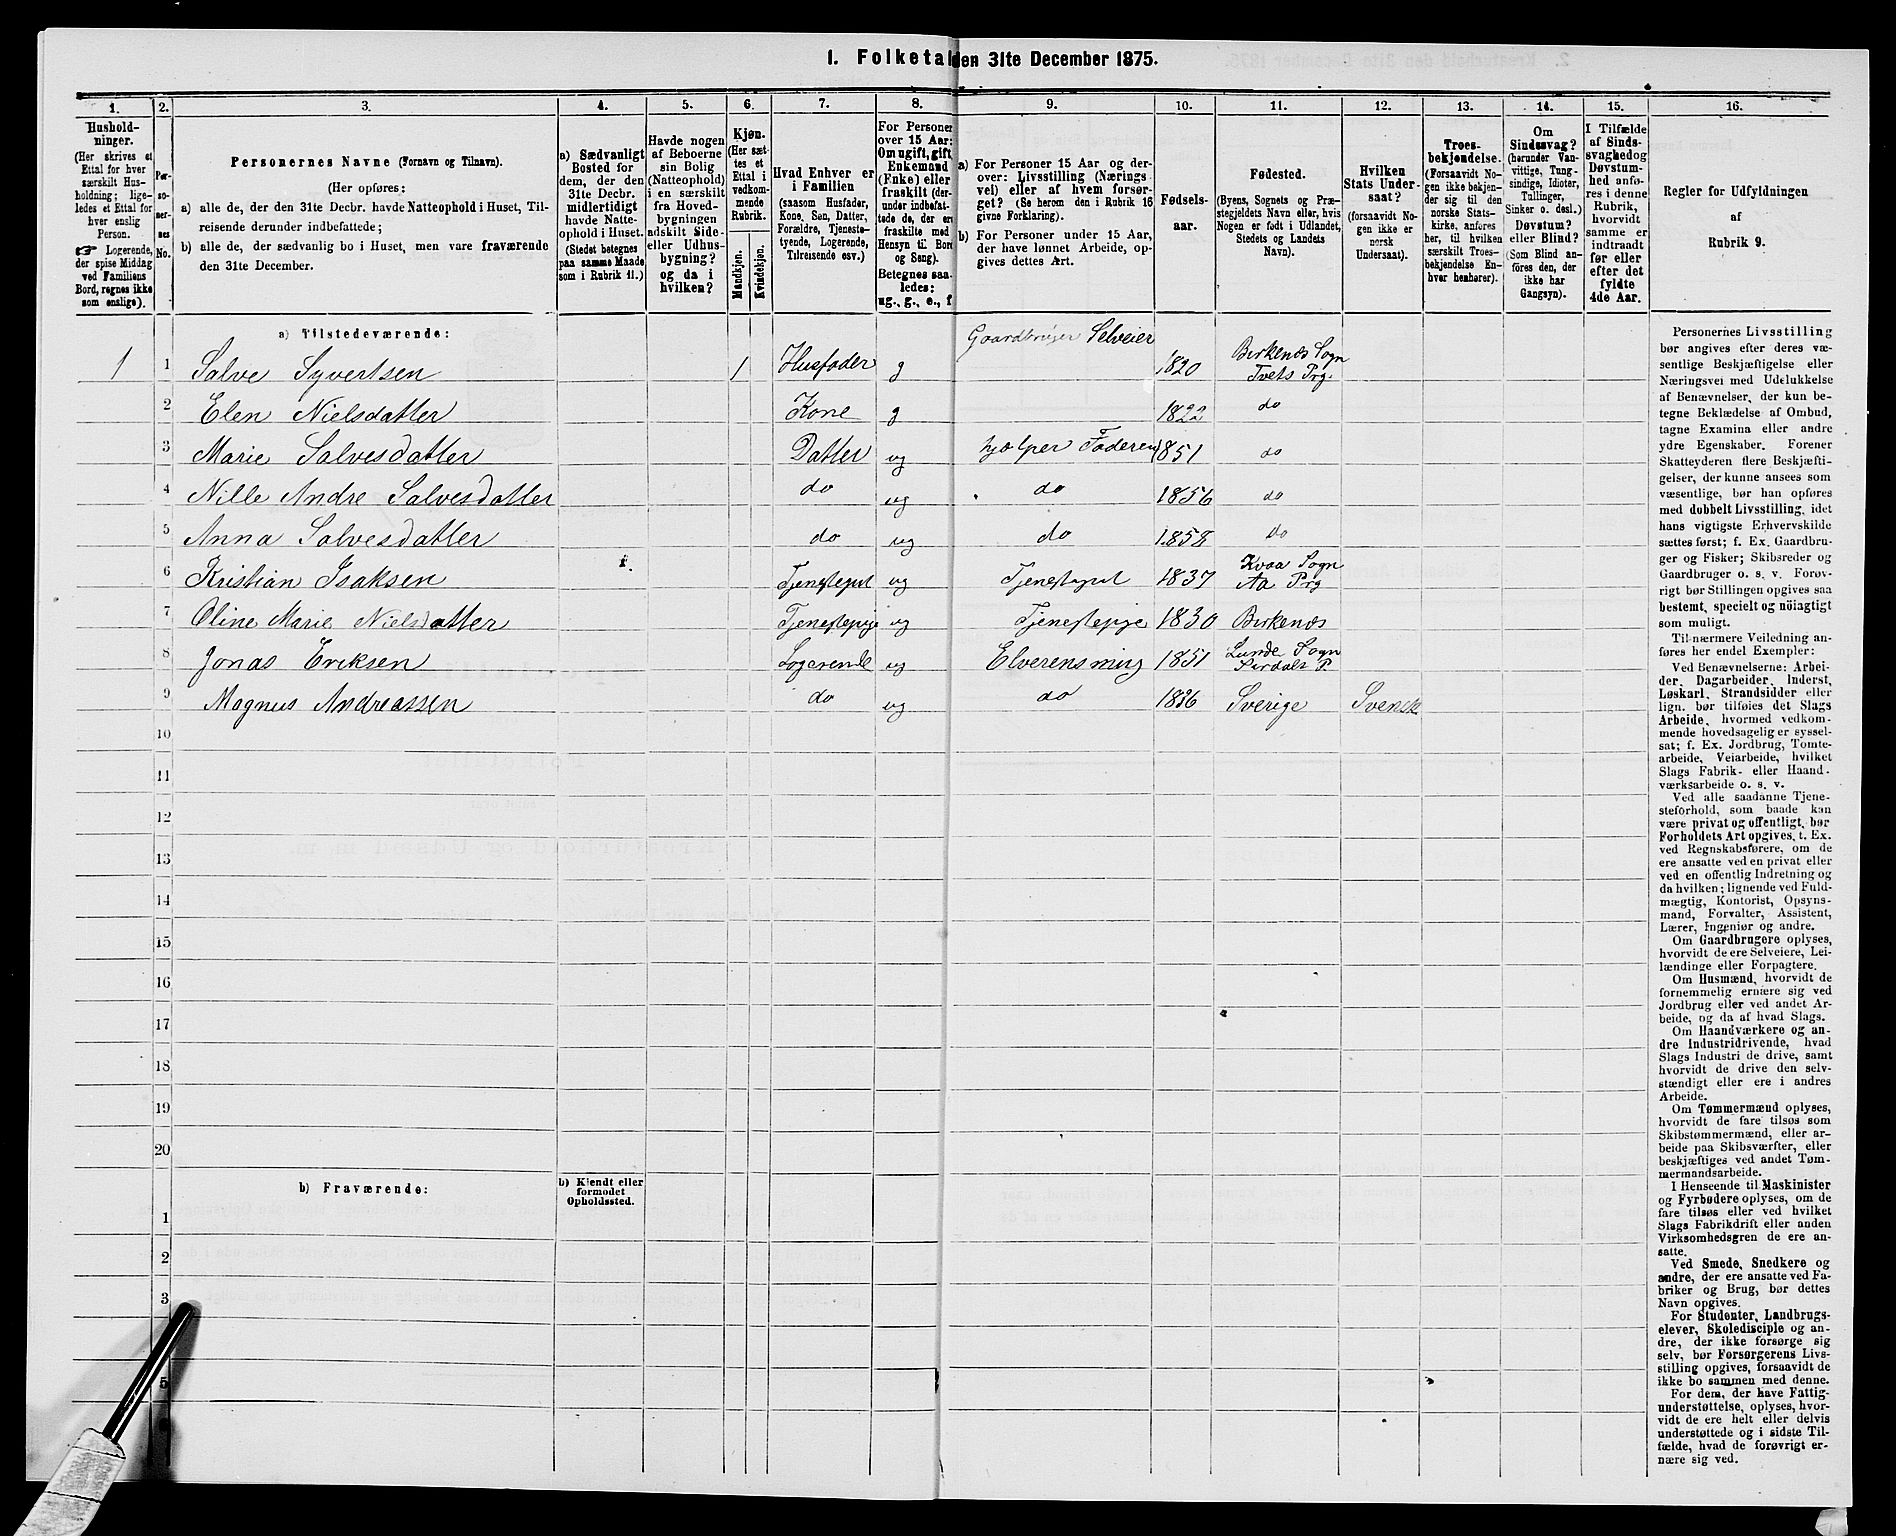 1. Folketal den 31te December 1875.
1. 2. 3. 4. 5. 6. 7. 8. 9. 10. 11. 12. 13. 14. 15. 16.
Hushold-
ninger.
(Her skrives et
Ettal for hver
særskilt Hus-
holdning; lige-
ledes et Ettal for
hver enslig
Person.
☞ Logerende,
der spise Middag
ved Familiens
Bord, regnes ikke
som enslige).
Per-
so-
ner-
nes
No.
Personernes Navne (Fornavn og Tilnavn).
(Her opføres:
a) alle de, der den 31te Decbr. havde Natteophold i Huset, Til-
reisende derunder indbefattede;
b) alle de, der sædvanlig bo i Huset, men vare fraværende
den 31te December.
a) Sædvanligt
Bosted for
dem, der den
31te Decbr.
midlertidigt
havde Natte-
ophold i Huset.
(Stedet betegnes
paa samme Maade
som i Rubrik 11.)
Havde nogen
af Beboerne
sin Bolig
(Natteophold)
i en særskilt
fra Hoved-
bygningen
adskilt Side-
eller Udhus-
bygning?
og da i
hvilken?
Kjøn.
(Her sæt-
tes et
Ettal i
vedkom-
mende
Rubrik.
Mandkjøn.
Kvindekjøn.
Hvad Enhver er
i Familien
(saasom Husfader,
Kone, Søn, Datter,
Forældre, Tjeneste-
tyende, Logerende,
Tilreisende osv.)
For Personer
over 15 Aar:
Om ugift, gift,
Enkemand
(Enke) eller
fraskilt (der-
under indbefat-
tede de, der ere
fraskilte med
Hensyn til Bord
og Seng).
Betegnes saa-
ledes:
ug., g., e., f
a) For Personer 15 Aar og der-
over: Livsstilling (Nærings-
vei) eller af hvem forsør-
get? (Se herom den i Rubrik 16
givne Forklaring).
b) For Personer under 15 Aar,
der have lønnet Arbeide, op-
gives dettes Art.
Fødsels-
aar.
Fødested.
(Byens, Sognets og Præ-
stegjeldets Navn eller, hvis
Nogen er født i Udlandet,
Stedets og Landets
Navn).
Hvilken
Stats Under-
saat?
(forsaavidt No-
gen ikke er
norsk
Undersaat).
Troes-
bekjendelse.
(Forsaavidt No-
gen ikke bekjen-
der sig til den
norske Stats-
kirke, anføres
her, til hvilken
særskilt Troes-
bekjendelse En-
hver henhører).
Om
Sindssvag?
(herunder Van-
vittige, Tung-
sindige, Idioter,
Tullinger,
Sinker o. desl.)
Døvstum?
eller Blind?
(Som Blind an-
føres den, der
ikke har
Gangsyn).
I Tilfælde
af Sinds-
svaghed og
Døvstum-
hed anfø-
res i denne
Rubrik,
hvorvidt
samme er
indtraadt
før eller
efter det
fyldte
4de Aar.
Regler for Udfyldningen
af
Rubrik 9.
a) Tilstedeværende:
1 1 Salve Syvertsen 1 Husfader g Gaardbruger Selveier 1820 Birkenæs Sogn Tvets Prg
2 Elen Nielsdatter Kone g 1822 do
3 Marie Salvesdatter Datter ug hjælper Faderen 1851 do
4 Nille Andre Salvesdatter do ug do 1856 do
5 Anna Salvesdatter do ug do 1858 do
6 Kristian Isaksen Tjenestegut ug Tjenestegut 1837 Sogn Aa Prg
7 Oline Marie Nielsdatter Tjenestepige ug Tjenestepige 1830 Birkenæs
8 Jonas Eriksen Logerende ug 1851 Lunde Sogn Sirdals P
9 Magnus Andreassen do ug do 1836 Sverige Svensk
10
11
12
13
14
15
16
17
18
19
20
b) Fraværende:
b) Kjendt eller
formodet
Opholdssted.
1
2
3
5
Personernes Livsstilling
bør angives efter deres væ-
sentlige Beskjæftigelse eller
Næringsvei med Udelukkelse
af Benævnelser, der kun be-
tegne Beklædelse af Ombud,
tagne Examina eller andre
ydre Egenskaber. Forener
Skatteyderen flere Beskjæfti-
gelser, der kunne ansees som
væsentlige, bør han opføres
med dobbelt Livsstilling, idet
hans vigtigste Erhvervskilde
sættes først; f. Ex. Gaardbru-
ger og Fisker; Skibsreder og
Gaardbruger o. s. v. Forøv-
rigt bør Stillingen opgives saa
bestemt, specielt og nöiagtigt
som muligt.
Til nærmere Veiledning an-
føres her endel Exempler:
Ved Benævnelserne: Arbei-
der, Dagarbeider, Inderst,
Løskarl, Strandsidder eller
lign. bør tilføies det Slags
Arbeide, hvormed vedkom-
mende hovedsagelig er syssel-
sat; f. Ex. Jordbrug, Tomte-
arbeide, Veiarbeide, hvilket
Slags Fabrik- eller Haand-
værksarbeide o. s. v.
Ved alle saadanne Tjene-
steforhold, som baade kan
være privat og offentligt, bør
Forholdets Art opgives, t. Ex.
ved Regnskabsførere, om de
ere ansatte ved en privat eller
ved en offentlig Indretning og
da hvilken; lignende ved Fuld-
mægtig, Kontorist, Opsyns-
mand, Forvalter, Assistent,
Lærer, Ingeniør og andre.
Om Gaardbrugere oplyses,
hvorvidt de ere Selveiere, Lei-
lændinge eller Forpagtere.
Om Husmænd, hvorvidt de
fornemmelig ernære sig ved
Jordbrug eller ved andet Ar-
beide, og da af hvad Slags.
Om Haandværkere og an-
dre Industridrivende, hvad
Slags Industri de drive, samt
hvorvidt de drive den selv-
stændigt eller ere i andres
Arbeide.
Om Tømmermænd oplyses,
hvorvidt de fare tilsøs som
Skibstømmermænd, eller ar-
beide paa Skibsværfter, eller
beskjæftiges ved andet Tøm-
mermandsarbeide.
I Henseende til Maskinister
og Fyrbødere oplyses, om de
fare tilsøs eller ved hvilket
Slags Fabrikdrift eller anden
Virksomhedsgren de ere an-
satte.
Ved Smede, Snedkere og
andre, der ere ansatte ved Fa-
briker og Brug, bør dettes
Navn opgives.
For Studenter, Landbrugs-
elever, Skoledisciple og an-
dre, der ikke forsørge sig
selv, bør Forsørgerens Livs-
stilling opgives, forsaavidt de
ikke bo sammen med denne.
For dem, der have Fattig-
understøttelse, oplyses, hvor-
vidt de ere helt eller delvis
understøttede og i sidste Til-
fælde, hvad de forøvrigt er-
nære sig ved.